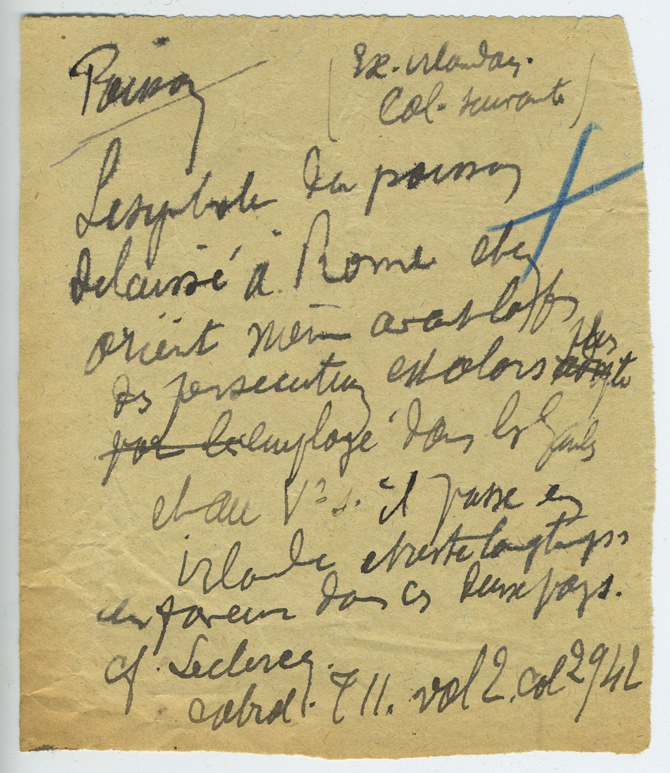 Poisson
(Ex. irlandais.
Col. suivante)
Le symbole du poisson
délaissé à Rome et en
orient même avant la fin
des persécution est alors plus
par le employé dans les Gaules
et au V e s. il passe en
irlande et reste longtemps
en faveur dans ces deux pays.
cf. Leclercq.
Cabrol. T II. vol 2. col 2942